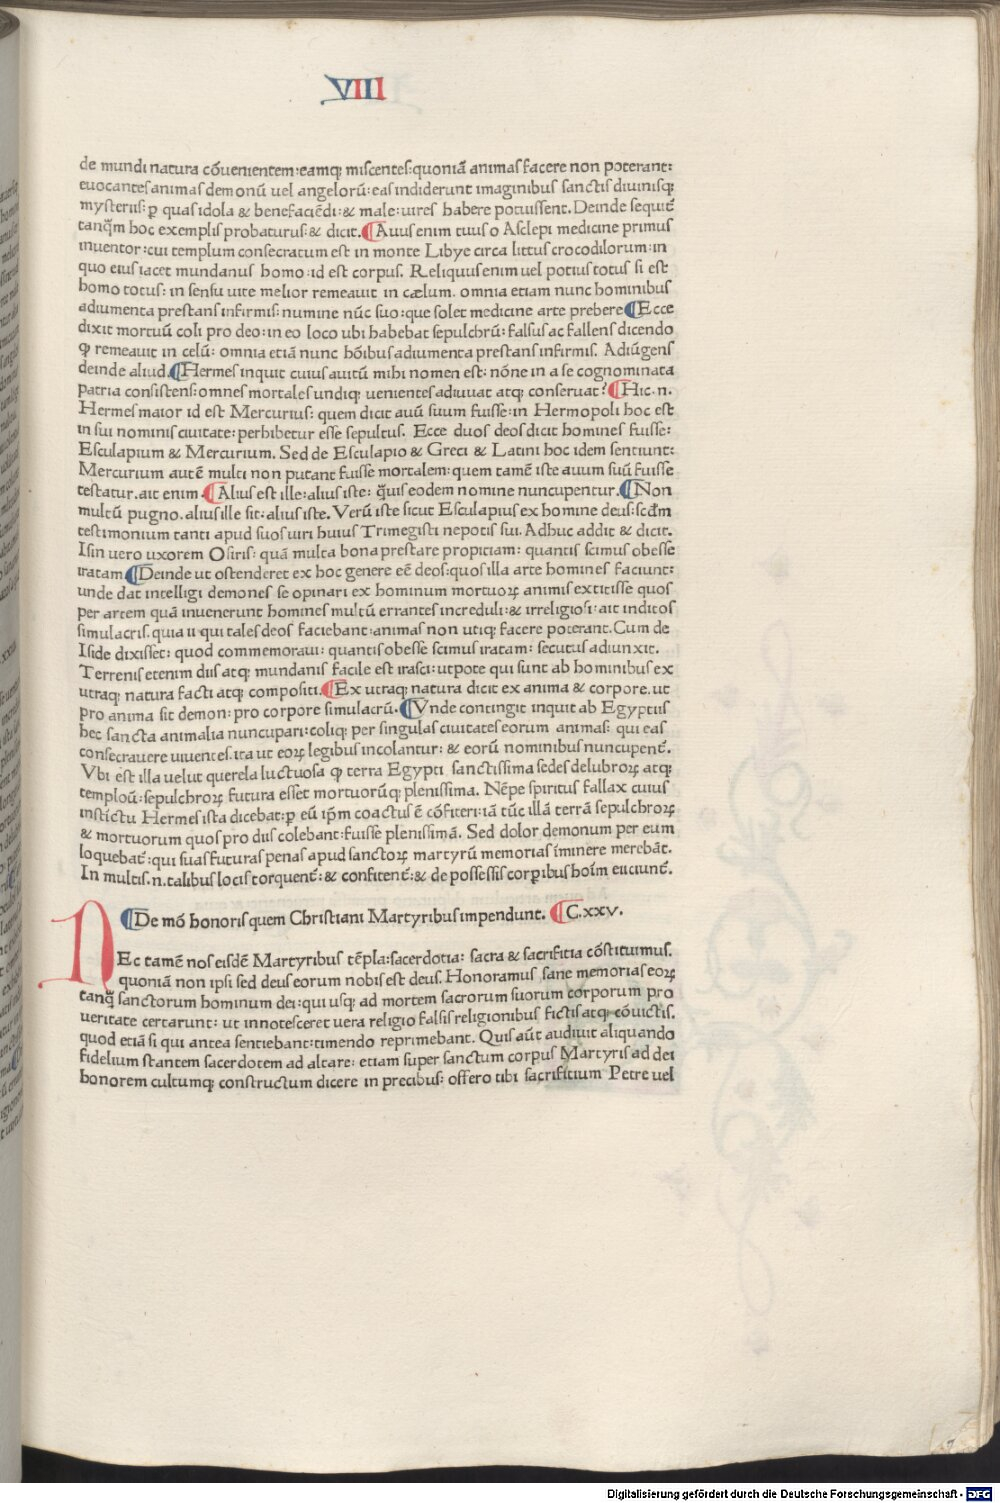 VIII
de mundi natura cōuenientem:eamq; miscentes:quoniā animas facere non poterant:
euocantes animas demonū uel angelorū:eas indiderunt imaginibus sanctis diuinisq;
mysteriis:ꝑ quas idola & benefaciēdi:& male:uires habere potuissent. Deinde sequiť
tanq̄m hoc exemplis probaturus:& dicit.¶Auus enim tuus o Asclepi medicine primus
inuentor:cui templum consecratum est in monte Libye circa littus crocodilorum:in
quo eius iacet mundanus homo:id est corpus. Reliquus enim uel potius totus si est
homo totus: in sensu uite melior remeauit in cælum. omnia etiam nunc hominibus
adiumenta prestans infirmis: numine nūc suo:que solet medicine arte prebere¶Ecce
dixit mortuū coli pro deo:in eo loco ubi habebat sepulchrū:falsus ac fallens dicendo
ꝙ remeauit in celū: omnia etiā nunc hōibus adiumenta prestans infirmis. Adiūgens
deinde aliud.¶Hermes inquit cuius auitū mihi nomen est: nōne in a se cognominata
patria consistens:omnes mortales undiq; uenientes adiuuat atq; conseruat?¶Hic.n.
Hermes maior id est Mercurius: quem dicit auū suum fuisse:in Hermopoli hoc est
in sui nominis ciuitate:perhibetur esse sepultus. Ecce duos deos dicit homines fuisse:
Esculapium & Mercurium. Sed de Esculapio & Greci & Latini hoc idem sentiunt:
Mercurium autē multi non putant fuisse mortalem:quem tamē iste auum suū fuisse
testatur.ait enim.¶Alius est ille:alius iste: q̄uis eodem nomine nuncupentur.¶Non
multū pugno.alius ille sit:alius iste. Verū iste sicut Esculapius ex homine deus:scd̄m
testimonium tanti apud suos uiri huius Trimegisti nepotis sui. Adhuc addit & dicit.
Isin uero uxorem Osiris: quā multa bona prestare propitiam: quantis scimus obesse
iratam¶Deinde ut ostenderet ex hoc genere eē deos:quos illa arte homines faciunt:
unde dat intelligi demones se opinari ex hominum mortuoꝝ animis extitisse quos
per artem quā inuenerunt homines multū errantes increduli:& irreligiosi:ait inditos
simulacris.quia ii qui tales deos faciebant:animas non utiq; facere poterant.Cum de
Iside dixisset: quod commemoraui: quantis obesse scimus iratam: secutus adiunxit.
Terrenis etenim diis atq; mundanis facile est irasci:utpote qui sunt ab hominibus ex
utraq; natura facti atq; compositi.¶Ex utraq; natura dicit ex anima & corpore.ut
pro anima sit demon: pro corpore simulacrū.¶Vnde contingit inquit ab Egyptiis
hec sancta animalia nuncupari:coliq; per singulas ciuitates eorum animas: qui eas
consecrauere uiuentes.ita ut eoꝝ legibus incolantur: & eorū nominibus nuncupenť.
Vbi est illa uelut querela luctuosa ꝙ terra Egypti sanctissima sedes delubroꝝ atq;
temploꝝ:sepulchroꝝ futura esset mortuorūq; plenissima. Nēpe spiritus fallax cuius
instictu Hermes ista dicebat:ꝑ eū ip̄m coactus ē cōfiteri:iā tūc illā terrā sepulchroꝝ
& mortuorum quos pro diis colebant:fuisse plenissimā. Sed dolor demonum per eum
loquebať:qui suas futuras penas apud sanctoꝝ martyrū memorias īminere merebāt.
In multis.n.talibus locis torquenť:& confitenť:& de possessis corꝑibus hoīm eiiciunť.
¶De mō honoris quem Christiani Martyribus impendunt. ¶C.xxv.
NEc tamē nos eisdē Martyribus tēpla:sacerdotia: sacra & sacrifitia cōstituimus.
quoniā non ipsi sed deus eorum nobis est deus. Honoramus sane memorias eoꝝ
tanq̄ sanctorum hominum dei:qui usq; ad mortem sacrorum suorum corporum pro
ueritate certarunt: ut innotesceret uera religio falsis religionibus fictis atq; cōuictis.
quod etiā si qui antea sentiebant:timendo reprimebant. Quis aūt audiuit aliquando
fidelium stantem sacerdotem ad altare: etiam super sanctum corpus Martyris ad dei
honorem cultumq; constructum dicere in precibus: offero tibi sacrifitium Petre uel
Digitalisierung gefördert durch die Deutsche Forschungsgemeinschaft - DFG